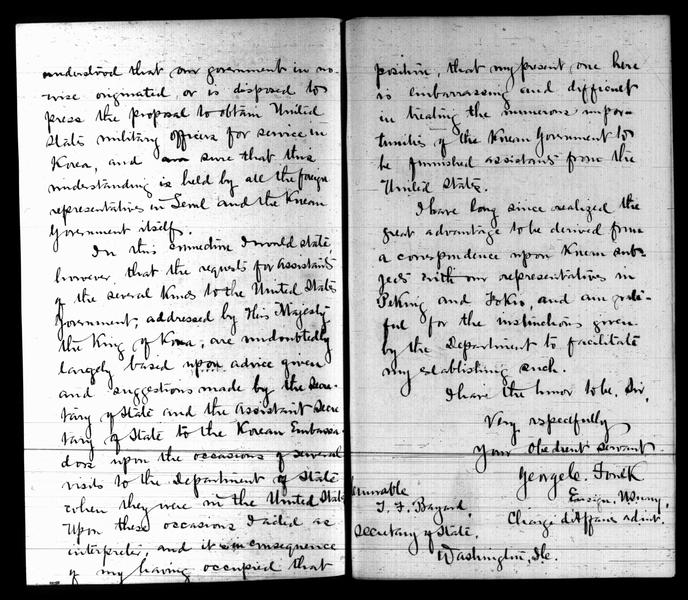 understood that our government in no-
wise originated, or is disposed to
press the proposal to obtain United
States military officers for service in
Korea, and am sure that this
understanding is held by all the foreign
representatives in Seoul and the Korean
Government itself.
In this connection I would state,
however, that the requests for assistants
of the several kinds to the United States
Government, addressed by His Majesty
the King of Korea, are undoubtedly
largely based upon advice given
and suggestions made by the Secre-
tary of State and the Assistant Secre
tary of State to the Korean Embassa-
dors upon the occasions of several
visits to the Department of State
when they were in the United States
Upon these occasions I acted as
interpreter, and it is in consequence
of my having occupied that
position, that my present one here
is embarrassing and difficult
in treating the numerous impor-
tunities of the Korean Government to
be furnished assistants from the
United States.
I have long since realized the
great advantage to be derived from
a correspondence upon Korean sub-
jects with our representatives in
Peking and Tokio, and am
for the instructions given
by the Department to facilitate
my establishing such.
I have the honor to be, Sir,
Very respectfully
Your obedient servant
George C. Foulk
Ensign, U.S. Navy,
Chargé d'Affaires ad int.
Honorable
T. F. Bayard,
Secretary of State,
Washington, D.C.